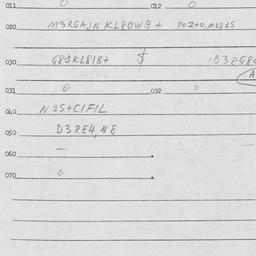 011 0 012 0
020 M3RGAJN KL80W8+ POZ+0,MK84S
030 G81KL8IB+ J 1B3RG8
A
031 0 032 0
040 N1S+CIFIL
050 D3RE4,N8
060 —
070 0